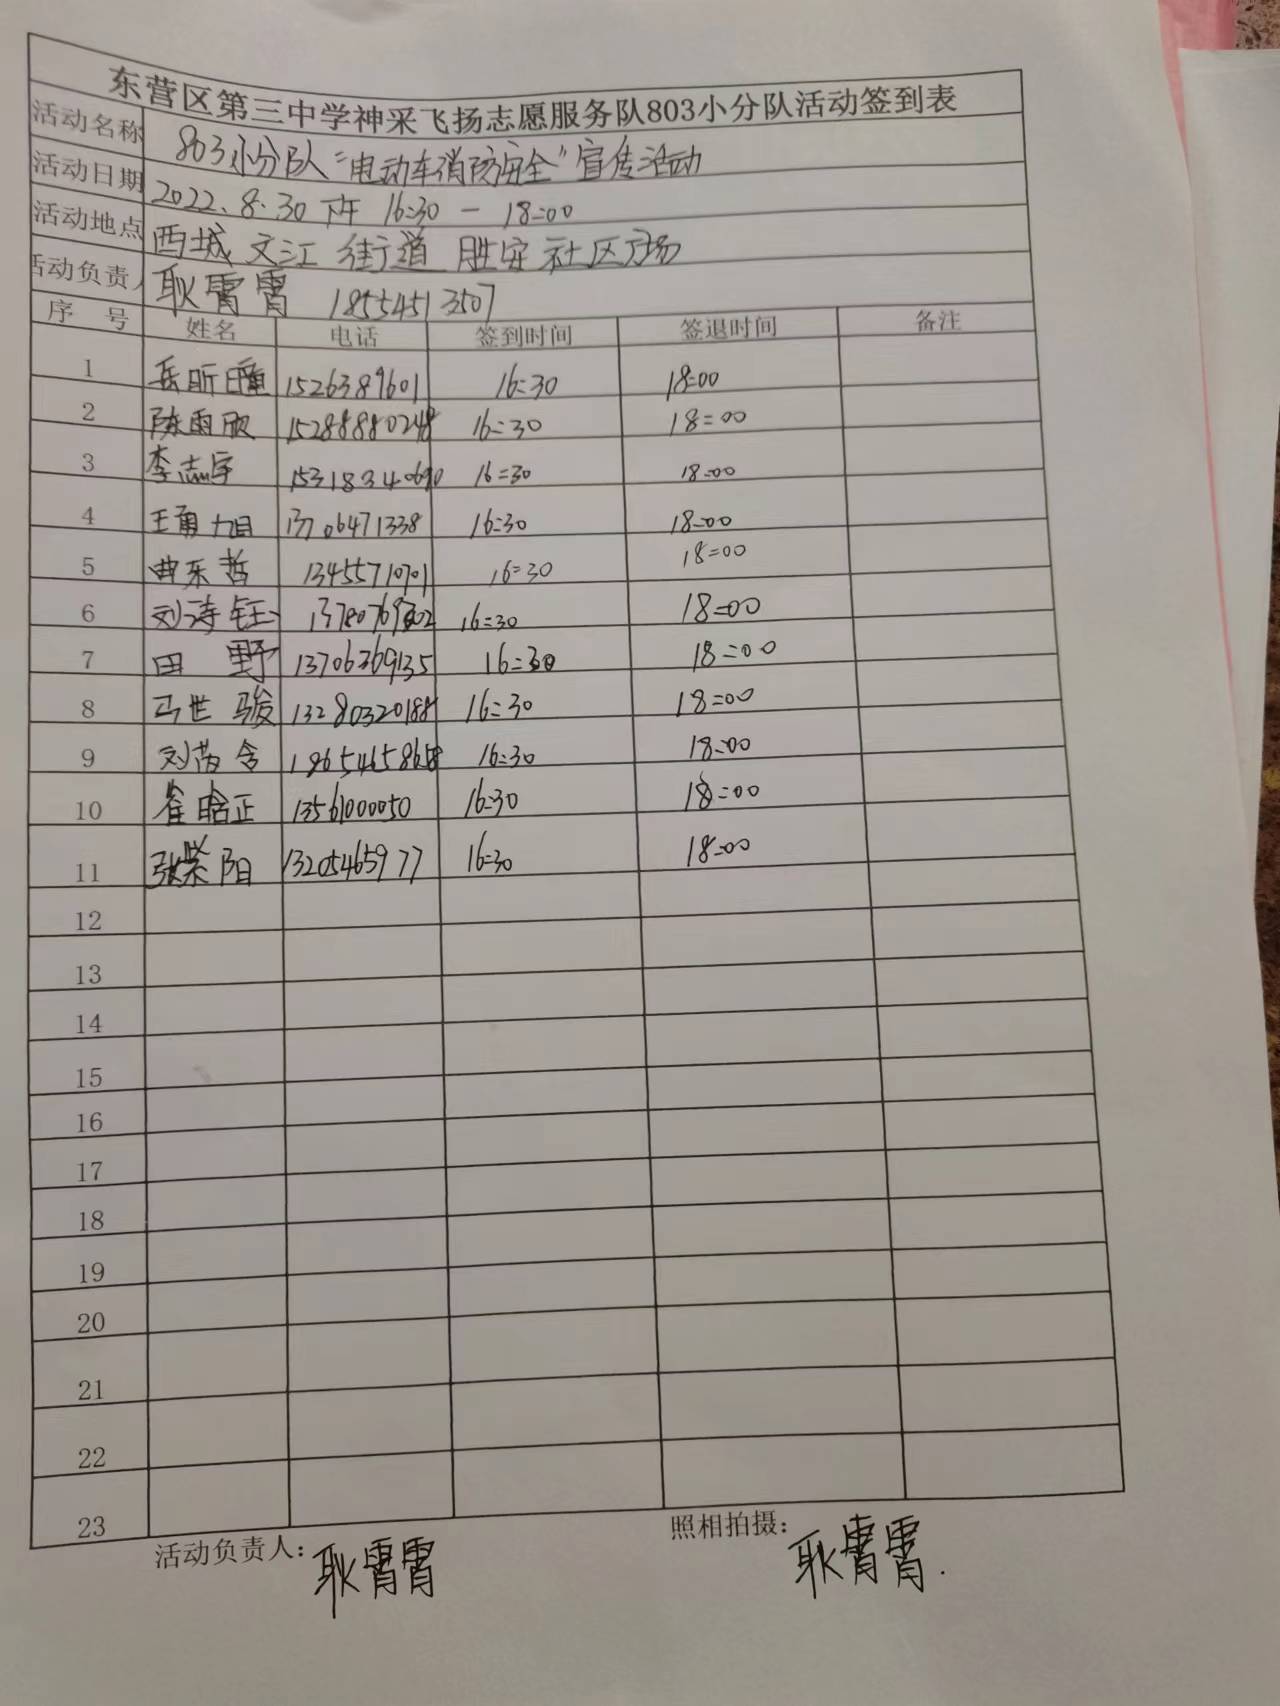 东营区第三中学神采飞扬志愿服务队803小分队活动签到表
活动名称 803小分队“电动车消防安全”宣传活动
活动日期 2022.8.30 下午 16:30 — 18:00
活动地点 西城 文汇 街道 胜安 社区广场
活动负责人 耿霄霄 18554513507
序 号 姓名 电话 签到时间 签退时间 备注
1 岳昕曈 1526389601 16:30 18:00
2 陈雨欣 15288880248 16:30 18:00
3 李志宇 15318340690 16:30 18:00
4 王勇旭 13706471338 16:30 18:00
5 曲东哲 13455710701 16:30 18:00
6 刘诗钰 16:30 18:00
7 田 野 13706369135 16:30 18:00
8 马世骏 13280320188 16:30 18:00
9 刘芮含 16:30 18:00
10 崔晗正 13561000050 16:30 18:00
11 张紫阳 13205465977 16:30 18:00
12
13
14
15
16
17
18
19
20
21
22
23
活动负责人：耿霄霄 照相拍摄：耿霄霄.